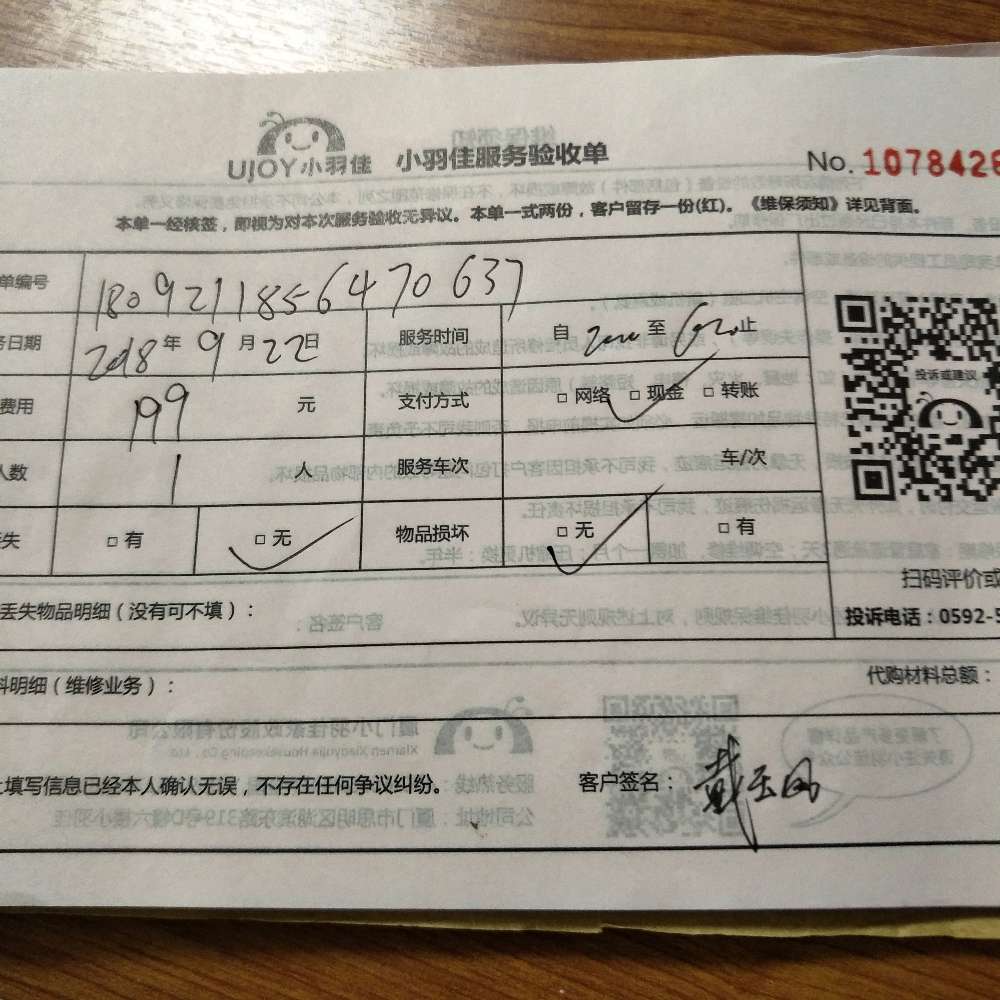 UJOY小羽佳 小羽佳服务验收单 No. 1078428
本单一经核签，即视为对本次服务验收无异议。本单一式两份，客户留存一份(红)。《维保须知》详见背面。
单编号 1809211856470637
务日期 2018年9月22日 服务时间 自 至 止
费用 199 元 支付方式 □ 网络 □ 现金 □ 转账
人数 1 人 服务车次 车/次
失 □ 有 □ 无 物品损坏 □ 无 □ 有
投诉或建议
扫码评价或
投诉电话：0592-5
丢失物品明细（没有可不填）：
料明细（维修业务）： 代购材料总额：
上填写信息已经本人确认无误，不存在任何争议纠纷。 客户签名：戴玉凤